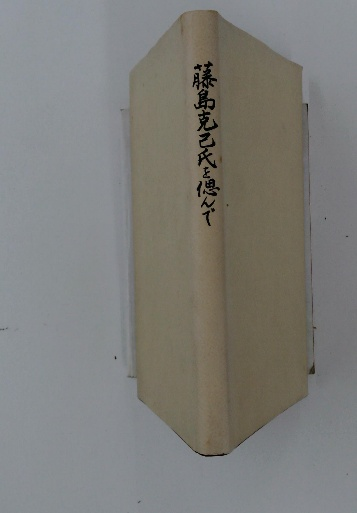 藤島克己氏を偲んで